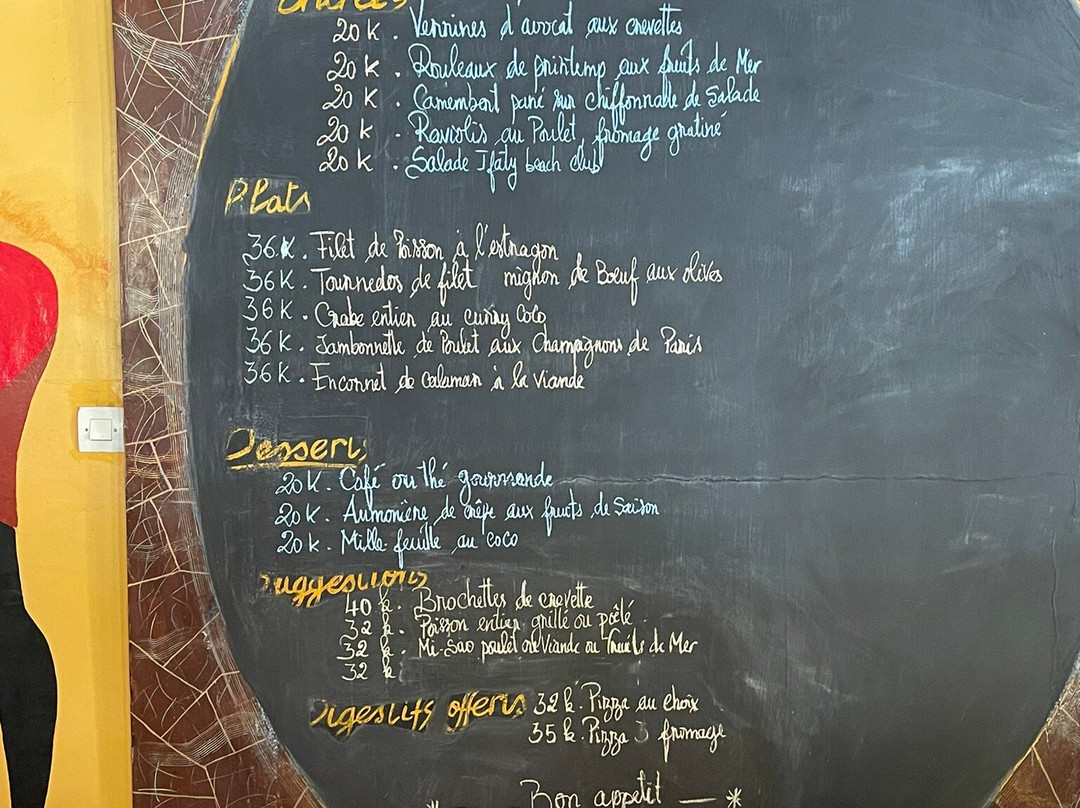 Entrées
20 k . Verrines d'avocat aux crevettes
20 k . Rouleaux de printemp aux fruits de Mer
20 K . Camembert pané sur chiffonnade de Salade
20 k - Raviolis au Poulet, fromage gratiné
20 k . Salade Ifaty beach club
Plats
36K . Filet de Poisson à l'estragon
36K . Tournedos de filet mignon de Boeuf aux olives
36K . Crabe entier au curry Coco
36K . Jambonnette de Poulet aux Champignons de Paris
36K . Encornet de calamar à la viande
Desserts
20K . Café ou thé gourmande
20K . Aumonière de crêpe aux fruits de saison
20k . Mille-feuille au coco
Suggestions
40 k . Brochettes de crevette
32 k . Poisson entier grillé ou poêlé
32 k . Mi-Sao poulet ou Viande ou Fruits de Mer
32 k
Digestifs offerts 32k . Pizza au choix
35 k . Pizza 3 fromage
* Bon appetit — *